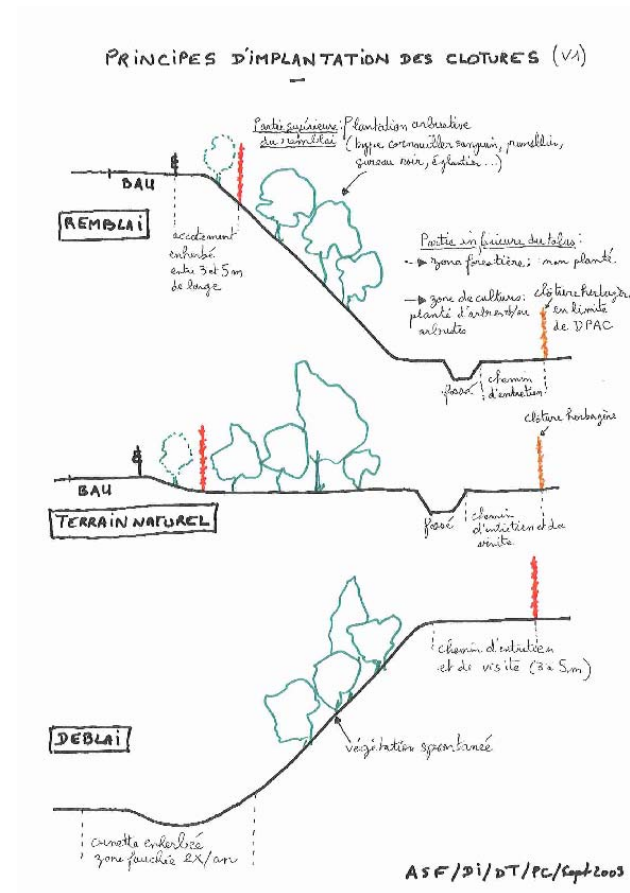 PRINCIPES D'IMPLANTATION DES CLOTURES (V1)
Partie supérieure du remblai : Plantation arbustive
(type cornouiller sanguin, prunellier,
sureau noir, églantier...)
BAU
REMBLAI
accotement
enherbé
entre 3 et 5 m
de large
Partie inférieure du talus :
zone forestière : non planté.
zone de culture :
planté d'arbres et/ou
arbustes
clôture herbagère
en limite
de DPAC
fossé
chemin
d'entretien
clôture herbagère
BAU
TERRAIN NATUREL
fossé
chemin
d'entretien et de
visite
chemin d'entretien
et de visite (3 à 5 m)
DEBLAI
végétation spontanée
cunette enherbée
zone fauchée 2x/an
ASF/DI/DT/PC/Sept 2003